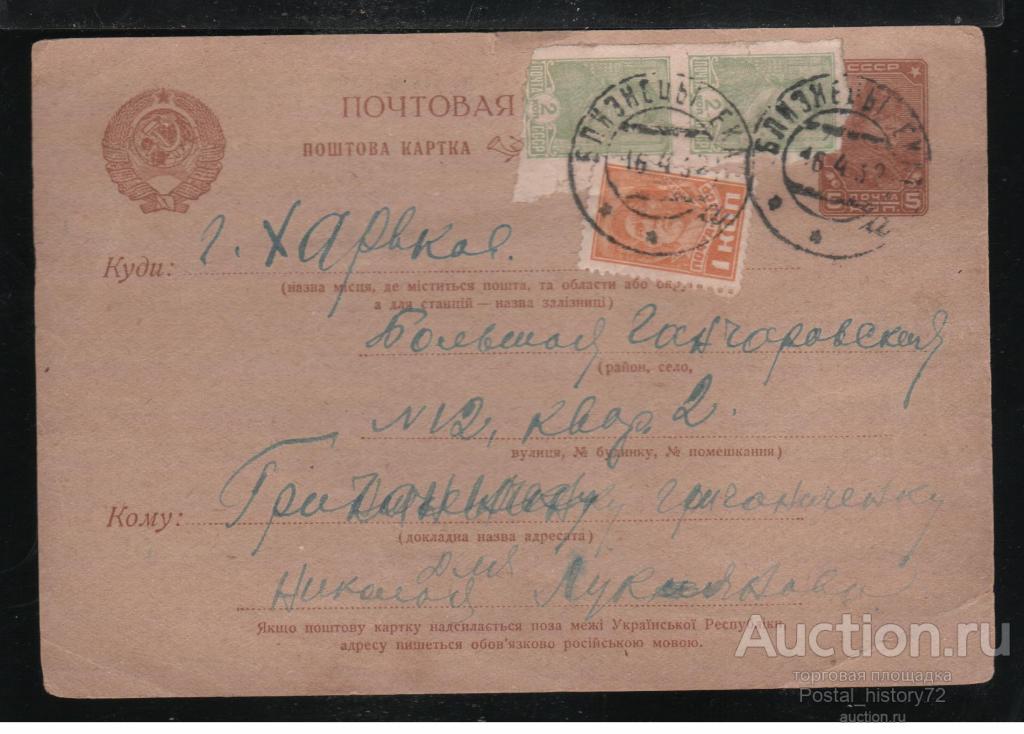 СССР
ПОЧТОВАЯ
ПОШТОВА КАРТКА
ПОЧТА 2 КОП. СССР
ПОЧТА 2 КОП. СССР
БЛИЗНЕЦЫ ЕКА
16 4 32
БЛИЗНЕЦЫ ЕКА
16 4 32
ПОЧТА
5 КОП. 5
1 КОП
Куди: г. Харьков.
(назва місця, де міститься пошта, та области або окр
а для станцій — назва залізниці)
Большая Гончаровская
(район, село,
№12, квар. 2.
вулиця, № будинку, № помешкання)
Кому: Григониченку
(докладна назва адресата)
для
Николая Лукьянова
Якщо поштову картку надсилається поза межі Української Республіки,
адресу пишеться обов'язково російською мовою.
Auction.ru
торговая площадка
Postal_history72
auction.ru